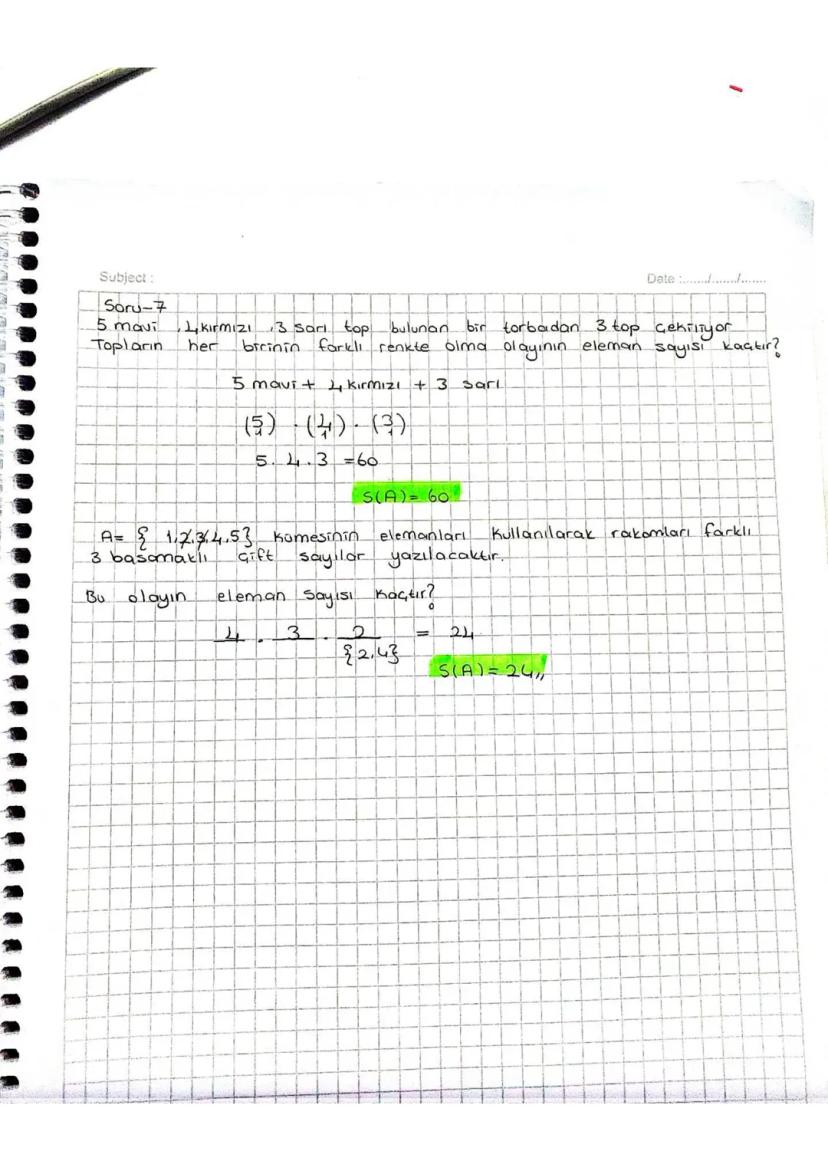 Subject :
Date :......./......./.......
Soru-7
5 mavi , 4 kırmızı , 3 sarı top bulunan bir torbadan 3 top çekiliyor
Topların her birinin farklı renkte olma olayının eleman sayısı kaçtır?
5 mavi + 4 kırmızı + 3 sarı
(5 1) . (4 1) . (3 1)
5 . 4 . 3 = 60
S(A) = 60
A = { 1,2,3,4,5} kümesinin elemanları kullanılarak rakamları farklı
3 basamaklı çift sayılar yazılacaktır.
Bu olayın eleman sayısı kaçtır?
4 . 3 . 2 = 24
{2,4}
S(A) = 24,,